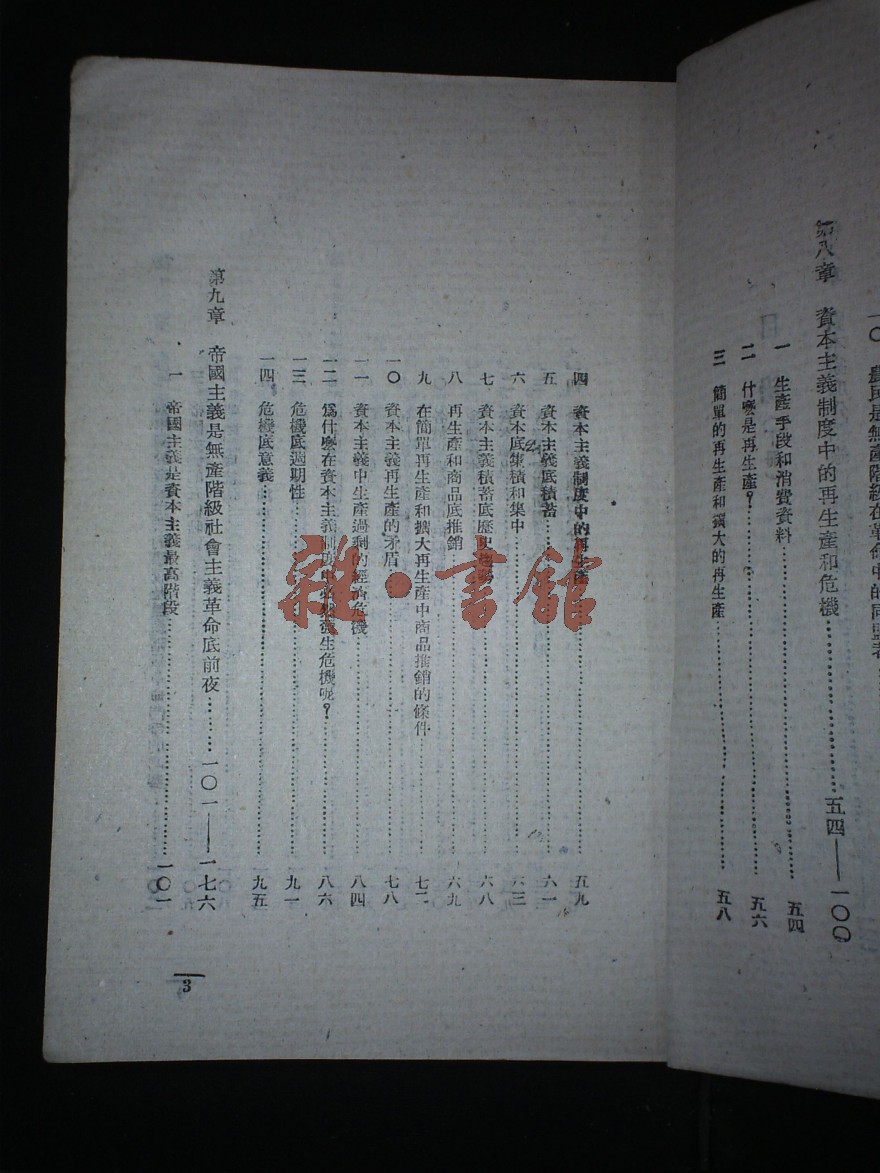 一〇 農民是無產階級在革命中的同盟者
第八章 資本主義制度中的再生產和危機…………五四——一〇〇
一 生產手段和消費資料…………五四
二 什麼是再生產？…………五六
三 簡單的再生產和擴大的再生產…………五八
四 資本主義制度中的再生產…………五九
五 資本主義底積蓄…………六一
六 資本底集積和集中…………六三
七 資本主義積蓄底歷史…………六八
八 再生產和商品底推銷…………六九
九 在簡單再生產和擴大再生產中商品推銷的條件…………七二
一〇 資本主義再生產的矛盾…………七八
一一 資本主義中生產過剩的經濟危機…………八四
一二 爲什麼在資本主義制度中必然發生危機呢？…………八六
一三 危機底週期性…………九一
一四 危機底意義…………九五
第九章 帝國主義是無產階級社會主義革命底前夜………一〇一——一七六
一 帝國主義是資本主義最高階段…………一〇一
3
雜·書館